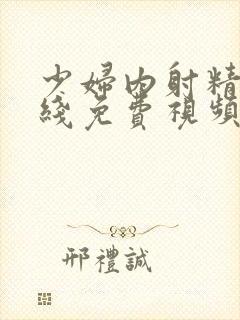 少婦內射精
綫免費視頻
邢禮誠